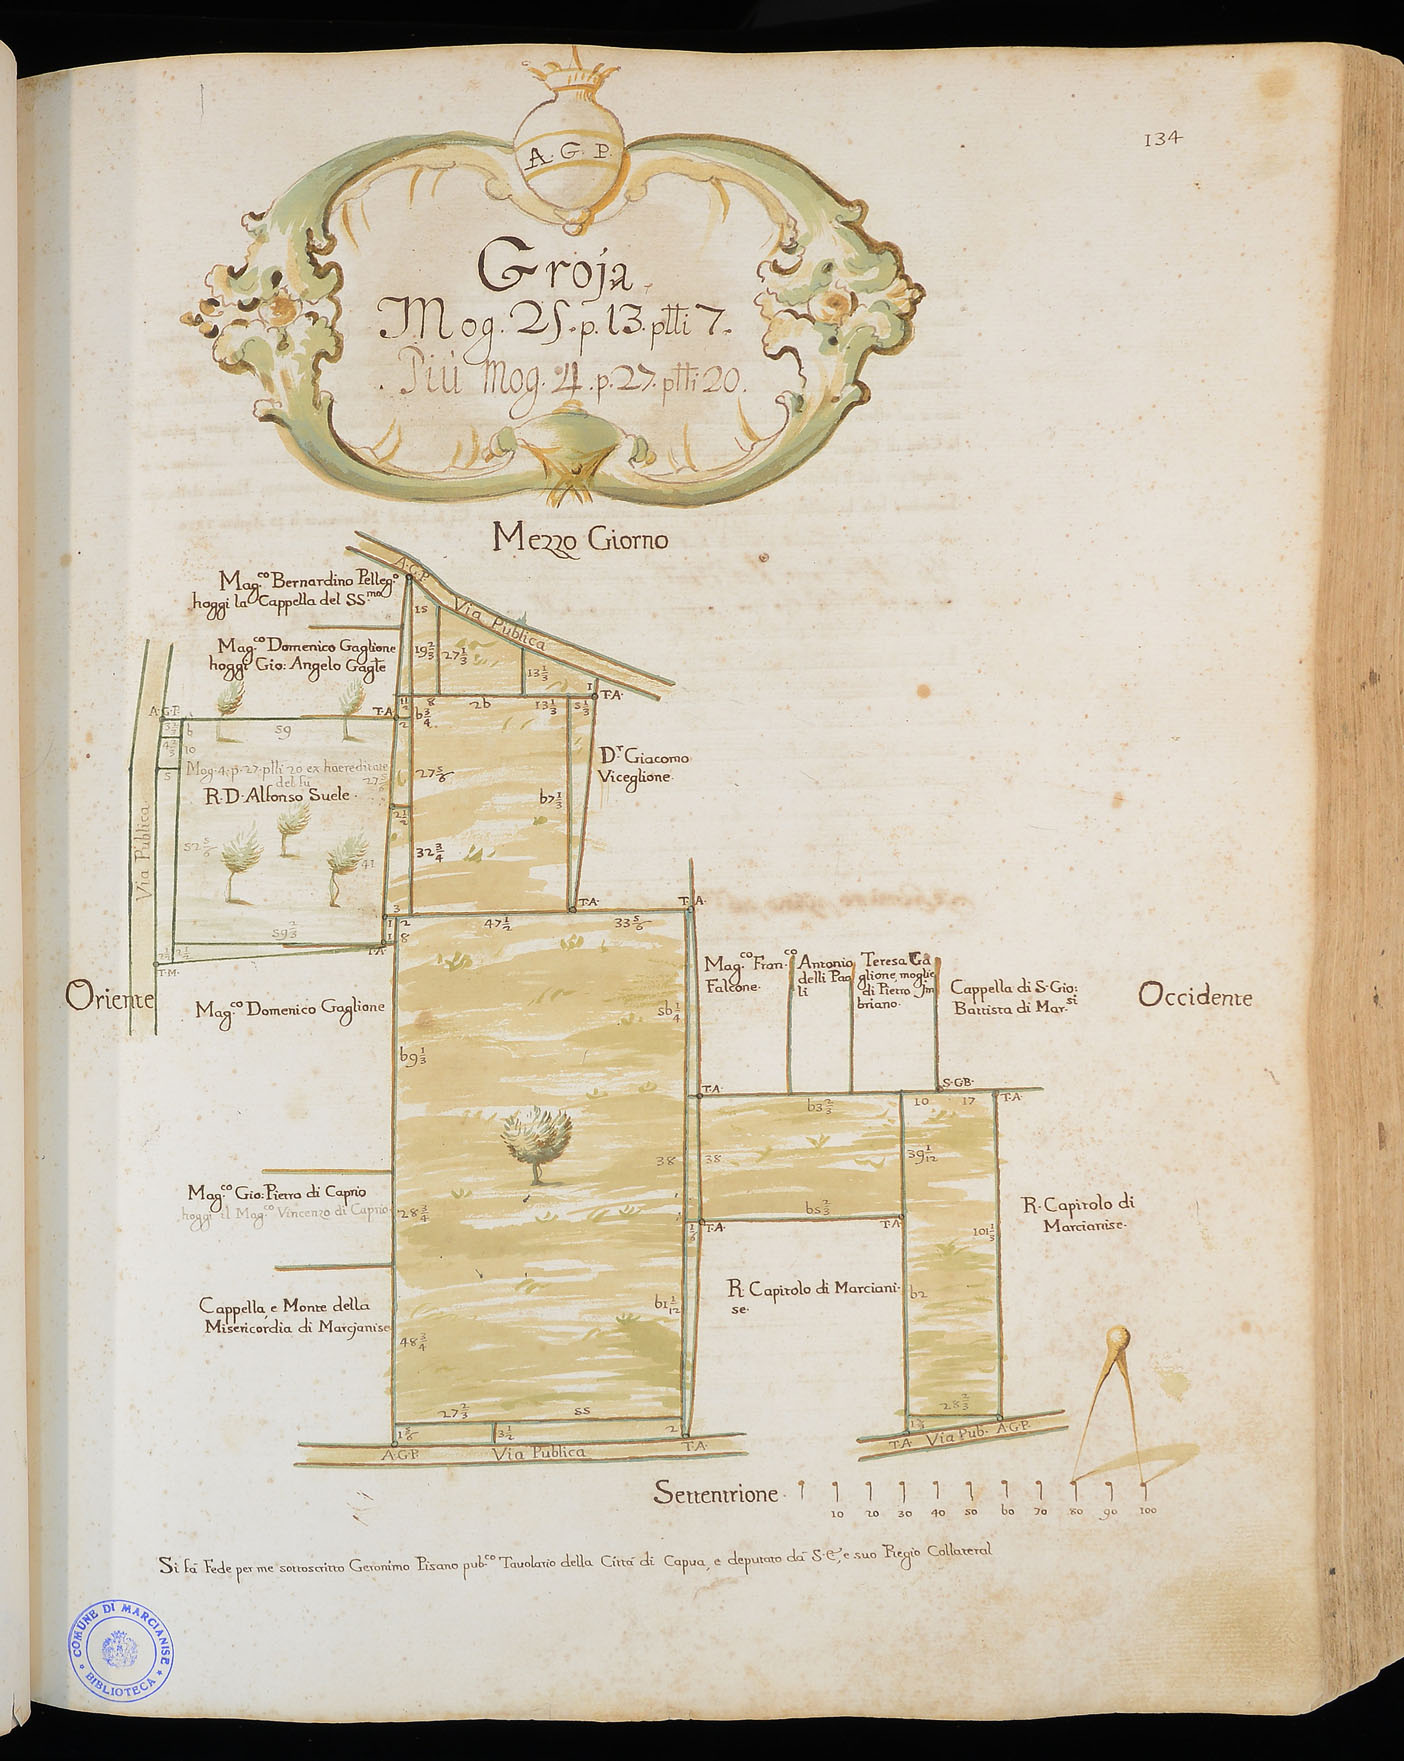 134
A. G. P.
Groja
Mog. 25. p. 13. ptti 7.
Più Mog. 4. p. 27. ptti 20.
Mezzo Giorno
A.G.P.
Mag.co Bernardino Pelleg.o
hoggi la Cappella del SS.mo
Via Publica
15
19 2/3
27 1/3
13 1/3
Mag.co Domenico Gaglione
hoggi Gio: Angelo Gagte
1
T.A.
A.G.P.
T.A.
8
26
13 1/3
5 1/3
6 3/4
2
6
59
4 2/3
10
5
Mog. 4. p. 27. ptti 20 ex haereditate
del fù
R. D. Alfonso Suele.
27 5/6
27 5/6
Dr Giacomo
Viceglione.
67 1/3
2 1/2
Via Publica
52 5/6
41
32 3/4
59 2/3
T.A.
T.M.
3
1
2
1
8
47 1/2
T.A.
33 5/6
T.A.
Oriente
Mag.co Domenico Gaglione
69 1/3
56 1/4
Mag.co Fran.co
Falcone.
Antonio
delli Pao
li
Teresa Ga
glione, moglie
di Pietro Jm
briano.
Cappella di S. Gio:
Battista di Mar.si
Occidente
T.A.
S.G.B.
T.A.
63 2/3
10
17
38
38
39 1/12
Mag.co Gio: Pietro di Caprio
hoggi il Mag.co Vincenzo di Caprio
28 3/4
65 2/3
T.A.
T.A.
1/6
101 1/3
R. Capitolo di
Marcianise.
R. Capitolo di Marciani-
se.
62
Cappella, e Monte della
Misericordia di Marcianise
61 1/12
48 3/4
27 2/3
55
28 2/3
1 5/6
3 1/2
2
A.G.P.
Via Publica
T.A.
T.A.
Via Pub.
A.G.P.
Settentrione
10 20 30 40 50 60 70 80 90 100
Si fà Fede per me sottoscritto Geronimo Pisano pub.co Tavolario della Città di Capua, e deputato dà S. E., e suo Regio Collateral
COMUNE DI MARCIANISE
BIBLIOTECA